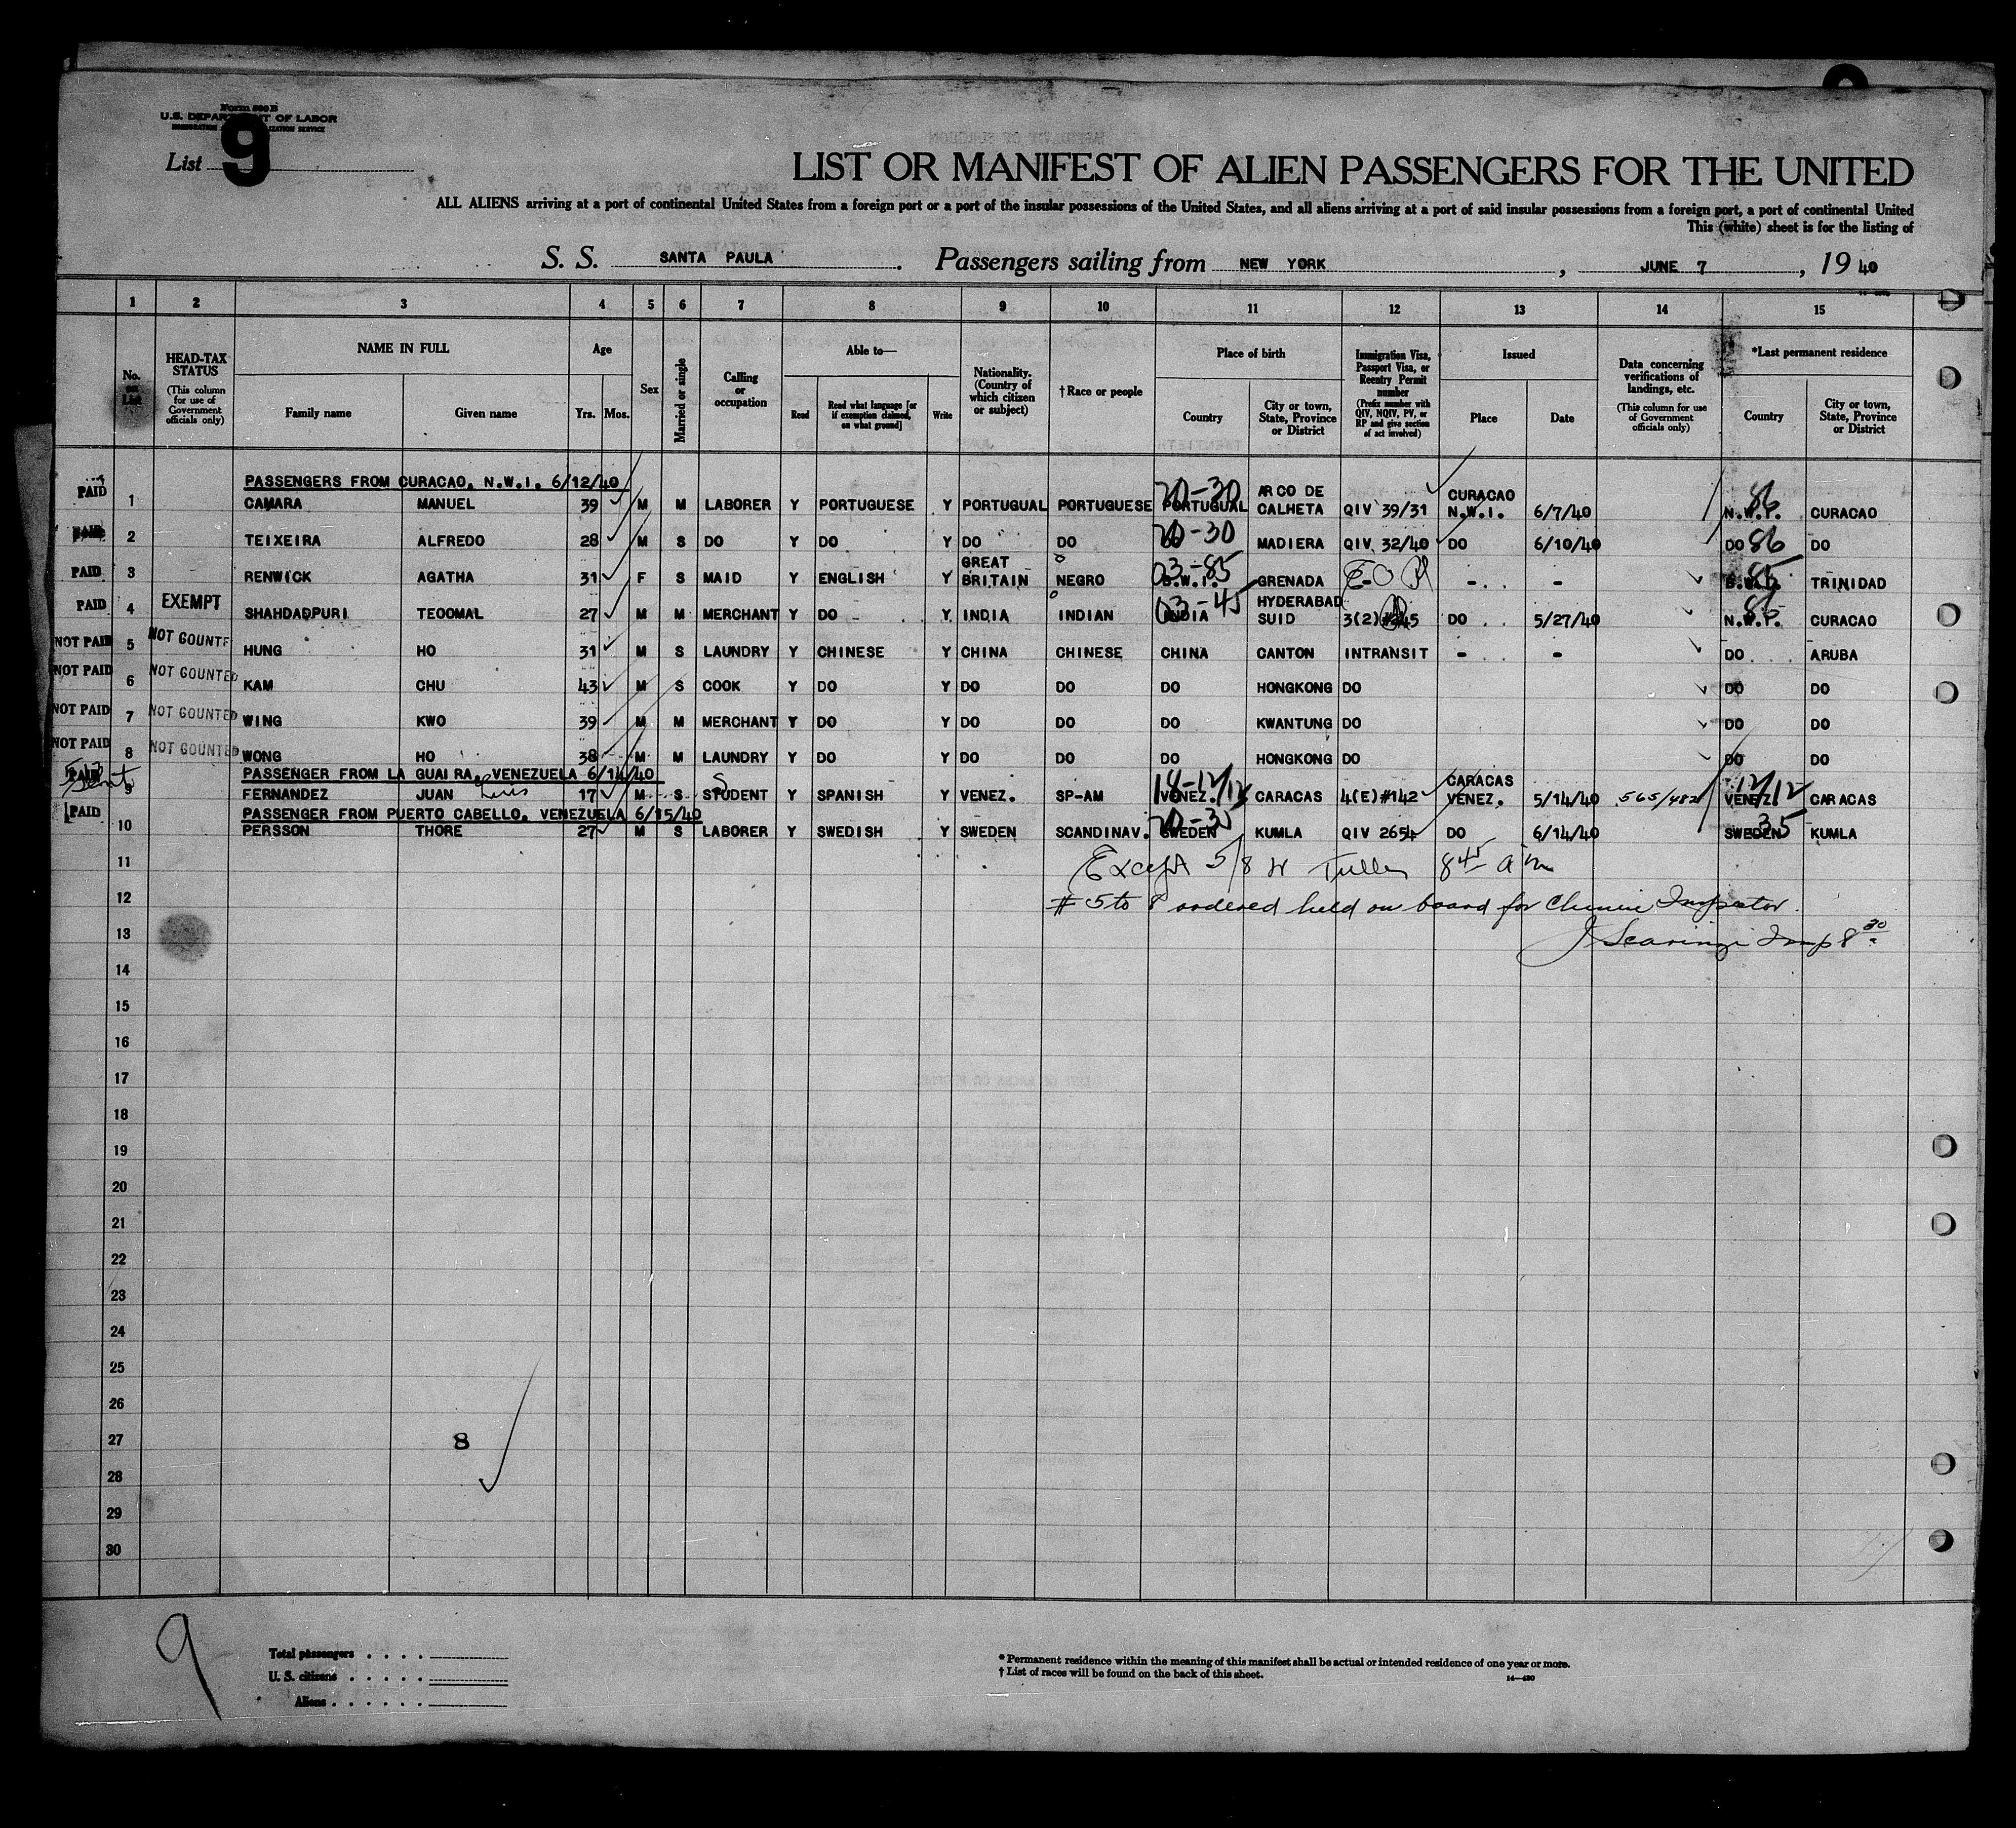 Form 500 B
U.S. DEPARTMENT OF LABOR
List 9
LIST OR MANIFEST OF ALIEN PASSENGERS FOR THE UNITED
ALL ALIENS arriving at a port of continental United States from a foreign port or a port of the insular possessions of the United States, and all aliens arriving at a port of said insular possessions from a foreign port, a port of continental United
This (white) sheet is for the listing of
S. S. SANTA PAULA. Passengers sailing from NEW YORK, JUNE 7, 19 40
1 2 3 4 5 6 7 8 9 10 11 12 13 14 15
No. on List
HEAD-TAX STATUS (This column for use of Government officials only)
NAME IN FULL Family name Given name
Age Yrs. Mos.
Sex
Married or single
Calling or occupation
Able to— Read Read what language [or if exemption claimed, on what ground] Write
Nationality. (Country of which citizen or subject)
† Race or people
Place of birth Country City or town, State, Province or District
Immigration Visa, Passport Visa, or Reentry Permit number (Prefix number with QIV, NQIV, PV, or RP and give section of act involved)
Issued Place Date
Data concerning verifications of landings, etc. (This column for use of Government officials only)
*Last permanent residence Country City or town, State, Province or District
PASSENGERS FROM CURACAO, N.W.I. 6/12/40
PAID 1 CAMARA MANUEL 39 M M LABORER Y PORTUGUESE Y PORTUGUAL PORTUGUESE 20-30 PORTUGUAL ARCO DE CALHETA QIV 39/31 CURACAO N.W.I. 6/7/40 86 N.W.I. CURACAO
PAID 2 TEIXEIRA ALFREDO 28 M S DO Y DO Y DO DO 20-30 MADIERA QIV 32/40 DO 6/10/40 DO 86 DO
PAID 3 RENWICK AGATHA 31 F S MAID Y ENGLISH Y GREAT BRITAIN NEGRO 03-85 B.W.I. GRENADA - - 85 B.W.I. TRINIDAD
PAID 4 EXEMPT SHAHDADPURI TEOOMAL 27 M M MERCHANT Y DO Y INDIA INDIAN 03-45 INDIA HYDERABAD SUID 3(2)#245 DO 5/27/40 86 N.W.I. CURACAO
NOT PAID 5 NOT COUNTE HUNG HO 31 M S LAUNDRY Y CHINESE Y CHINA CHINESE CHINA CANTON INTRANSIT - - DO ARUBA
NOT PAID 6 NOT COUNTED KAM CHU 43 M S COOK Y DO Y DO DO DO HONGKONG DO DO DO
NOT PAID 7 NOT COUNTED WING KWO 39 M M MERCHANT Y DO Y DO DO DO KWANTUNG DO DO DO
NOT PAID 8 NOT COUNTED WONG HO 38 M M LAUNDRY Y DO Y DO DO DO HONGKONG DO DO DO
PASSENGER FROM LA GUAIRA, VENEZUELA 6/14/40
PAID 9 FERNANDEZ JUAN Luis 17 M S STUDENT Y SPANISH Y VENEZ. SP-AM 18-12/12 VENEZ. CARACAS 4(E)#142 CARACAS VENEZ. 5/14/40 565/482 12/12 VENEZ. CARACAS
PASSENGER FROM PUERTO CABELLO, VENEZUELA 6/15/40
PAID 10 PERSSON THORE 27 M S LABORER Y SWEDISH Y SWEDEN SCANDINAV. 20-35 SWEDEN KUMLA QIV 2654 DO 6/14/40 35 SWEDEN KUMLA
11 Except 5/8 8 45 am
12 # 5 to 8 ordered held on board for Chinese Inspector.
13 J Scaringi Insp 8 30
14
15
16
17
18
19
20
21
22
23
24
25
26
27 8
28
29
30
9
Total passengers
U. S. citizens
Aliens
* Permanent residence within the meaning of this manifest shall be actual or intended residence of one year or more.
† List of races will be found on the back of this sheet.
14—430